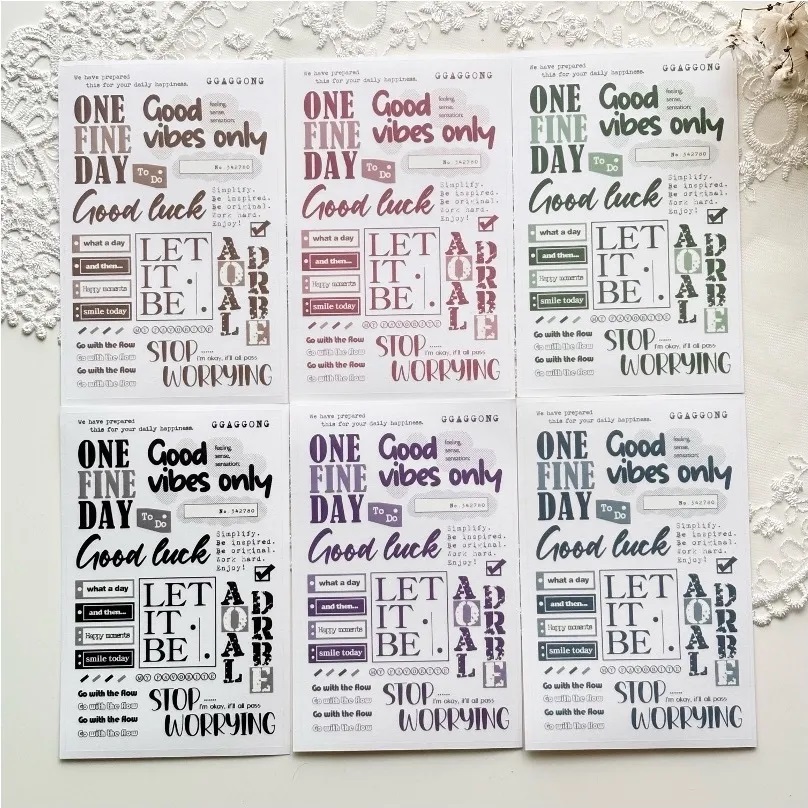 We have prepared
this for your daily happiness.
GGAGGONG
ONE
FINE
DAY
Good
vibes only
feeling,
sense,
sensation;
To
Do
No. 342780
Good luck
Simplify.
Be inspired.
Be original.
Work hard.
Enjoy!
what a day
and then...
Happy moments
smile today
LET
IT
BE
ADORABLE
MY FAVORITE
Go with the flow
Go with the flow
Go with the flow
Go with the flow
STOP ......
I'm okay, it'll all pass
WORRYING
We have prepared
this for your daily happiness.
GGAGGONG
ONE
FINE
DAY
Good
vibes only
feeling,
sense,
sensation;
To
Do
No. 342780
Good luck
Simplify.
Be inspired.
Be original.
Work hard.
Enjoy!
what a day
and then...
Happy moments
smile today
LET
IT
BE
ADORABLE
MY FAVORITE
Go with the flow
Go with the flow
Go with the flow
Go with the flow
STOP ......
I'm okay, it'll all pass
WORRYING
We have prepared
this for your daily happiness.
GGAGGONG
ONE
FINE
DAY
Good
vibes only
feeling,
sense,
sensation;
To
Do
No. 342780
Good luck
Simplify.
Be inspired.
Be original.
Work hard.
Enjoy!
what a day
and then...
Happy moments
smile today
LET
IT
BE
ADORABLE
MY FAVORITE
Go with the flow
Go with the flow
Go with the flow
Go with the flow
STOP ......
I'm okay, it'll all pass
WORRYING
We have prepared
this for your daily happiness.
GGAGGONG
ONE
FINE
DAY
Good
vibes only
feeling,
sense,
sensation;
To
Do
No. 342780
Good luck
Simplify.
Be inspired.
Be original.
Work hard.
Enjoy!
what a day
and then...
Happy moments
smile today
LET
IT
BE
ADORABLE
MY FAVORITE
Go with the flow
Go with the flow
Go with the flow
Go with the flow
STOP ......
I'm okay, it'll all pass
WORRYING
We have prepared
this for your daily happiness.
GGAGGONG
ONE
FINE
DAY
Good
vibes only
feeling,
sense,
sensation;
To
Do
No. 342780
Good luck
Simplify.
Be inspired.
Be original.
Work hard.
Enjoy!
what a day
and then...
Happy moments
smile today
LET
IT
BE
ADORABLE
MY FAVORITE
Go with the flow
Go with the flow
Go with the flow
Go with the flow
STOP ......
I'm okay, it'll all pass
WORRYING
We have prepared
this for your daily happiness.
GGAGGONG
ONE
FINE
DAY
Good
vibes only
feeling,
sense,
sensation;
To
Do
No. 342780
Good luck
Simplify.
Be inspired.
Be original.
Work hard.
Enjoy!
what a day
and then...
Happy moments
smile today
LET
IT
BE
ADORABLE
MY FAVORITE
Go with the flow
Go with the flow
Go with the flow
Go with the flow
STOP ......
I'm okay, it'll all pass
WORRYING